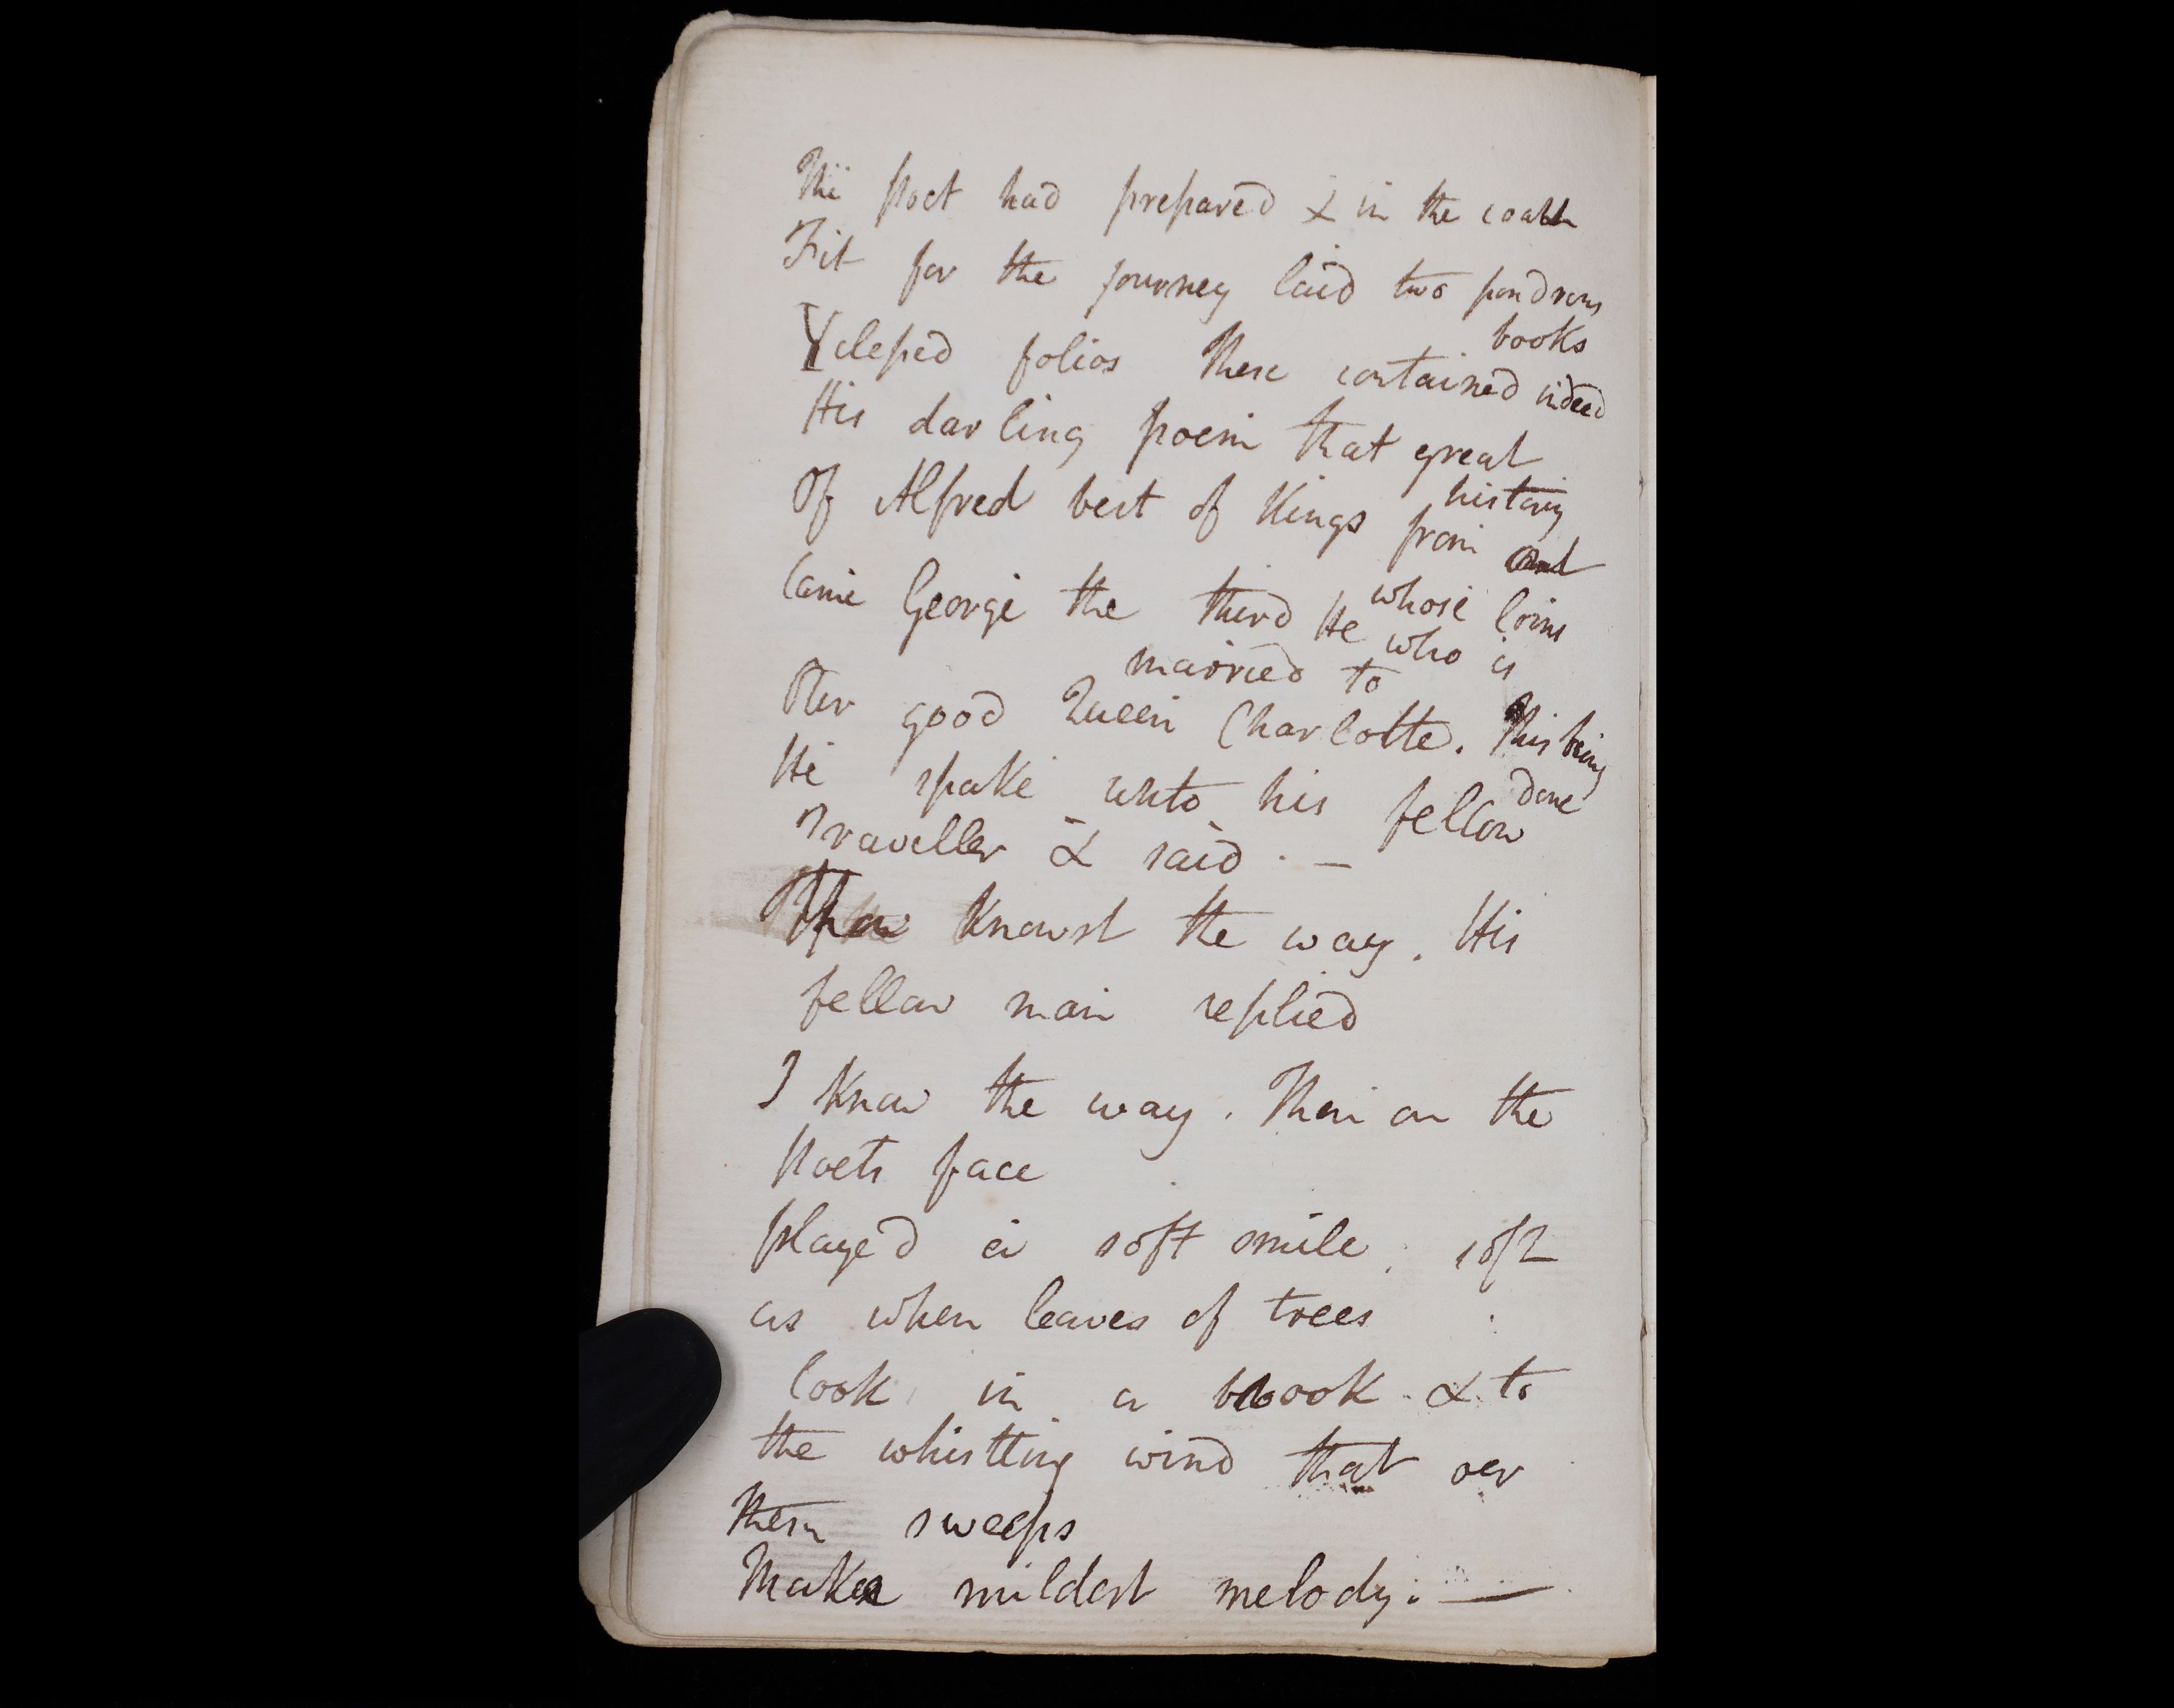 The poet had prepared & in the coach
Fit for the journey laid two pondrous
books
Ycleped folios These contained indeed
His darling poem that great
history
Of Alfred best of Kings from out
whose loins
Came George the third He who is
married to
Our good Queen Charlotte. This being
done
He spake unto his fellow
Traveller & said . —
Thou knowst the way. His
fellow man replied
I know the way. Then on the
Poets face
played a soft smile, soft
as when leaves of trees
look in a brook & to
the whistling wind that oer
them sweeps
Make mildest melody. —